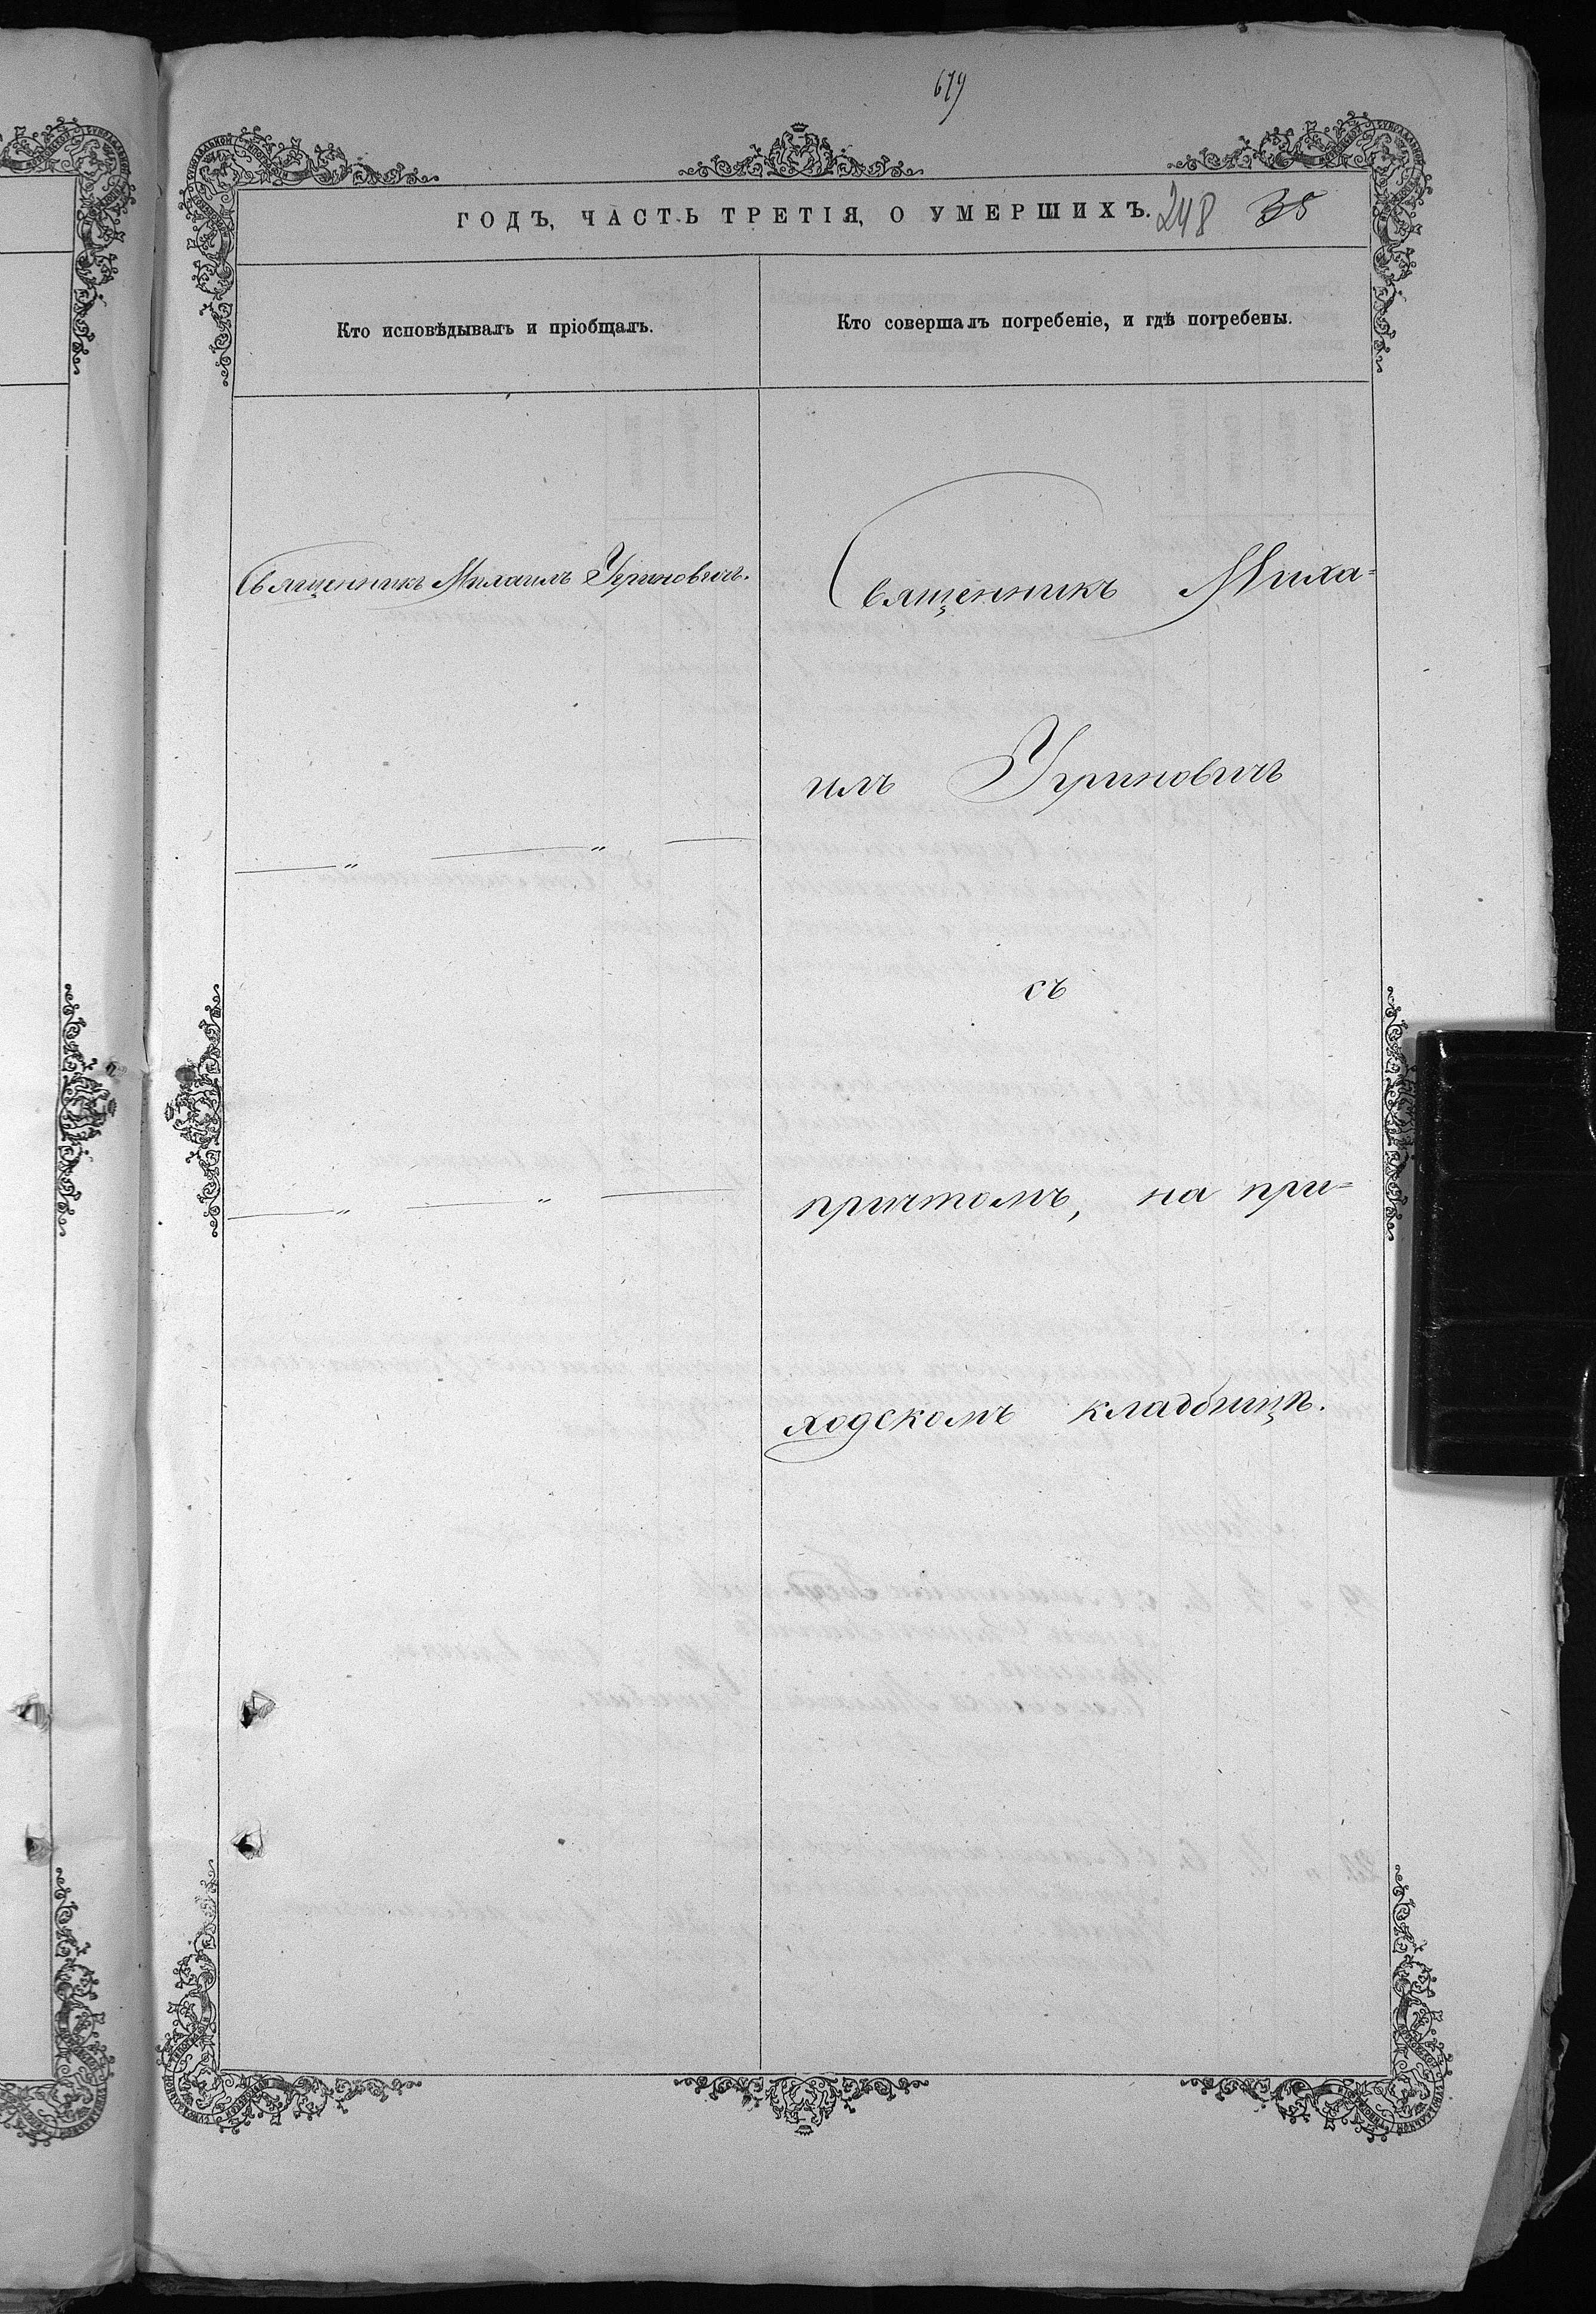 679
ГОДЪ, ЧАСТЬ ТРЕТІЯ, О УМЕРШИХЪ. 248 35
Кто исповѣдывалъ и пріобщалъ.
Кто совершалъ погребеніе, и гдѣ погребены.
Священникъ Михаилъ Угриновичъ.
— „ — „ —
— „ — „ —
Священникъ Миха=
илъ Угриновичъ
съ
причтомъ, на при=
ходскомъ кладбищѣ.